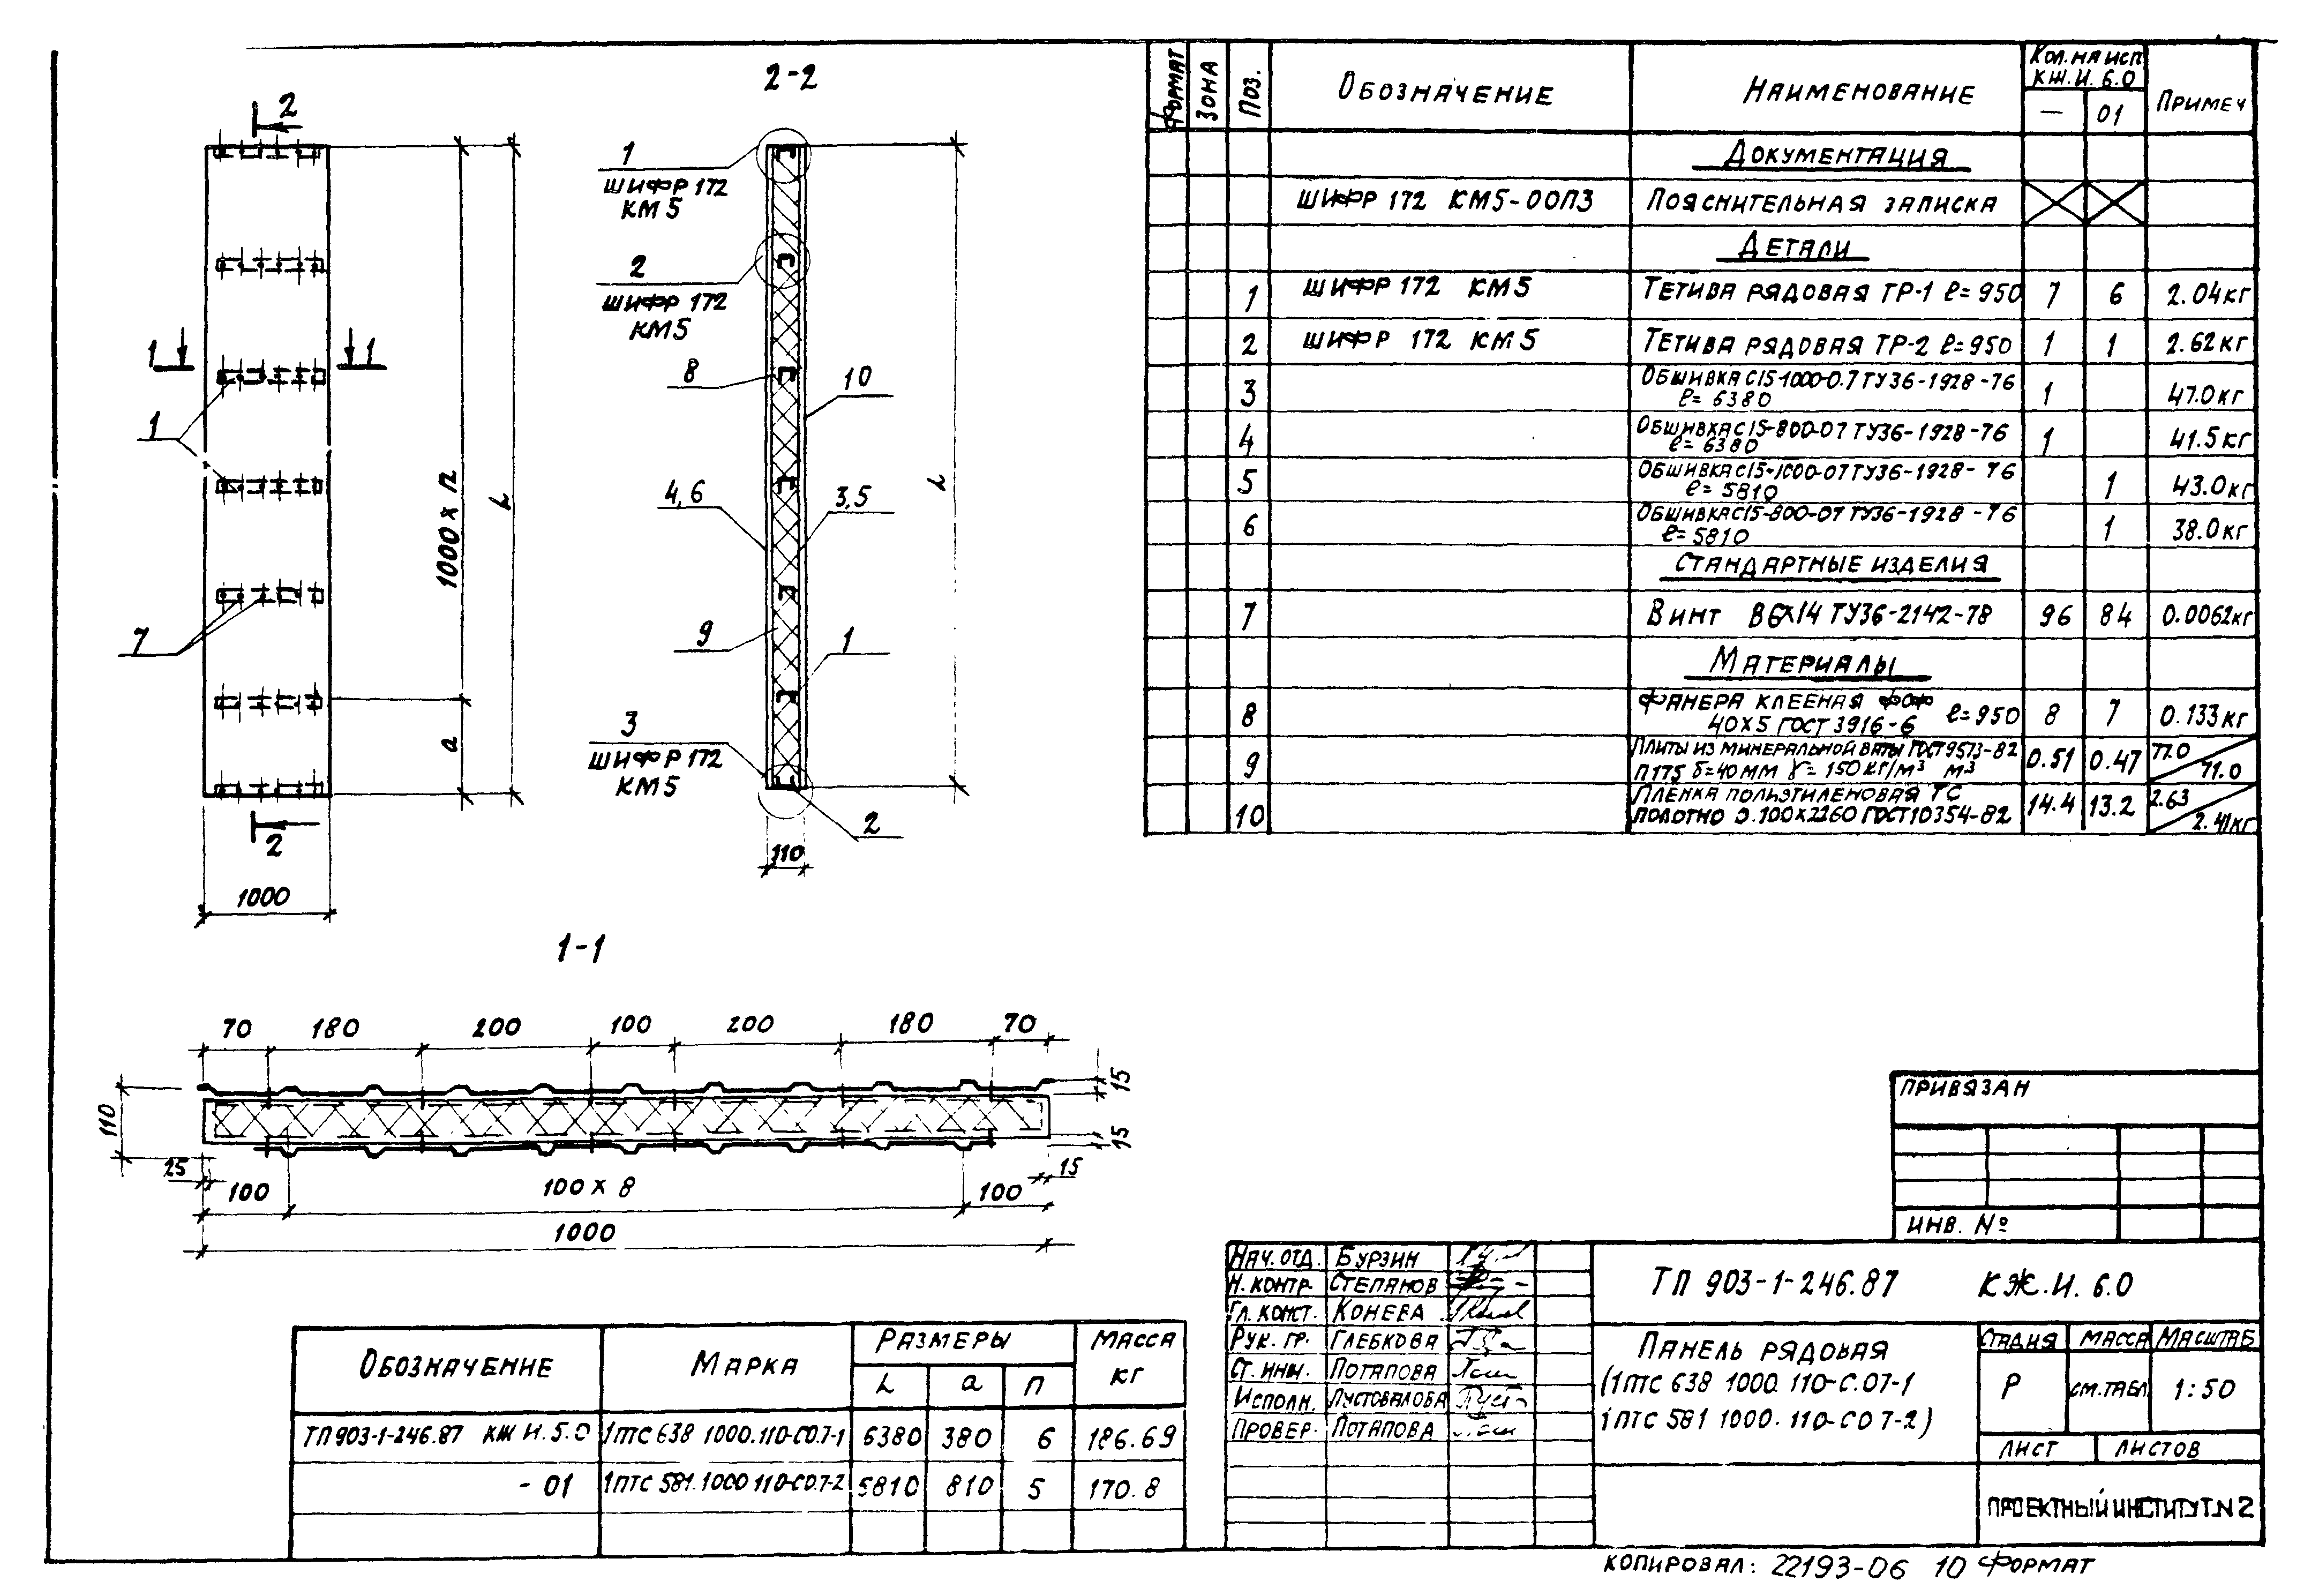 2-2
2
1
ШИФР 172
КМ 5
2
ШИФР 172
КМ5
8
10
1
1
1
4,6
3,5
1000 × n
L
L
9
1
7
3
ШИФР 172
КМ5
a
2
2
110
1000
1-1
70 180 200 100 200 180 70
15
110
15
25
15
100
100 × 8
100
1000
ФОРМАТ
ЗОНА
ПОЗ.
ОБОЗНАЧЕНИЕ
НАИМЕНОВАНИЕ
КОЛ. НА ИСП
КЖ.И. 6.0
— 01
ПРИМЕЧ
ДОКУМЕНТАЦИЯ
ШИФР 172 КМ5-00ПЗ ПОЯСНИТЕЛЬНАЯ ЗАПИСКА
ДЕТАЛИ
1 ШИФР 172 КМ5 ТЕТИВА РЯДОВАЯ ТР-1 ℓ=950 7 6 2.04кг
2 ШИФР 172 КМ5 ТЕТИВА РЯДОВАЯ ТР-2 ℓ=950 1 1 2.62кг
3 ОБШИВКА С15-1000-0.7 ТУ36-1928-76
ℓ= 6380 1 47.0кг
4 ОБШИВКА С15-800-07 ТУ36-1928-76
ℓ= 6380 1 41.5кг
5 ОБШИВКА С15-1000-07 ТУ36-1928-76
ℓ= 5810 1 43.0кг
6 ОБШИВКА С15-800-07 ТУ36-1928-76
ℓ=5810 1 38.0кг
СТАНДАРТНЫЕ ИЗДЕЛИЯ
7 ВИНТ В6×14 ТУ36-2142-78 96 84 0.0062кг
МАТЕРИАЛЫ
8 ФАНЕРА КЛЕЕНАЯ ФОФ
40×5 ГОСТ 3916-6 ℓ=950 8 7 0.133кг
9 ПЛИТЫ ИЗ МИНЕРАЛЬНОЙ ВАТЫ ГОСТ 9573-82
П175 δ=40ММ γ= 150КГ/М³ М³ 0.51 0.47 77.0 71.0
10 ПЛЕНКА ПОЛИЭТИЛЕНОВАЯ ТС
ПОЛОТНО 0.100×2260 ГОСТ10354-82 14.4 13.2 2.63 2.41кг
ПРИВЯЗАН
ИНВ. №
НАЧ. ОТД. БУРЗИН
Н. КОНТР. СТЕПАНОВ
ГЛ. КОНСТ. КОНЕВА
РУК. ГР. ГЛЕБКОВА
СТ. ИНЖ. ПОТАПОВА
ИСПОЛН. ПУСТОВАЛОВА
ПРОВЕР. ПОТАПОВА
ТП 903-1-246.87 КЖ.И. 6.0
ПАНЕЛЬ РЯДОВАЯ
(1ПТС 638 1000. 110-С.07-1
1ПТС 581 1000. 110-С0 7-2)
СТАДИЯ МАССА МАСШТАБ
Р СМ.ТАБЛ. 1:50
ЛИСТ ЛИСТОВ
ПРОЕКТНЫЙ ИНСТИТУТ N2
ОБОЗНАЧЕНИЕ
МАРКА
РАЗМЕРЫ
L a п
МАССА
КГ
ТП903-1-246.87 КЖ И. 5.0 1ПТС 638 1000.110-С0.7-1 6380 380 6 186.69
- 01 1ПТС 581.1000 110-С0.7-2 5810 810 5 170.8
КОПИРОВАЛ: 22193-06 10 ФОРМАТ